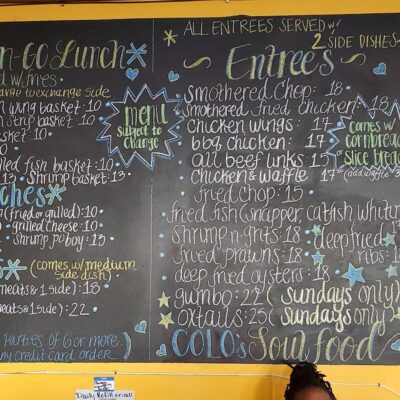 n-GO Lunch
d w/fries
arge to exchange side
n wing basket: 10
n strip basket: 10
basket: 10
led fish basket: 13
13 shrimp basket: 13
menu
subject to
change
ches
(fried or grilled): 10
grilled cheese: 10
shrimp poboy: 13
(comes w/medium
side dish)
meats & 1 side): 18
meats & 1 side): 22
parties of 6 or more
ny credit card order)
ALL ENTREES SERVED w/
2 SIDE DISHES
Entrees
smothered chop: 18
smothered fried chicken: 18
chicken wings: 17
bbq chicken: 17
all beef links: 15
chicken & waffle 17
comes w/
cornbread
slice bread
(add waffle 3
fried chop: 15
fried fish (snapper, catfish, whitin
shrimp n-grits: 18
deep fried
fried prawns: 18
ribs: 1
deep fried oysters: 18
gumbo: 22 (sundays only)
oxtails: 25 (sundays only)
COLO's Soul Food
Daily Refill on all